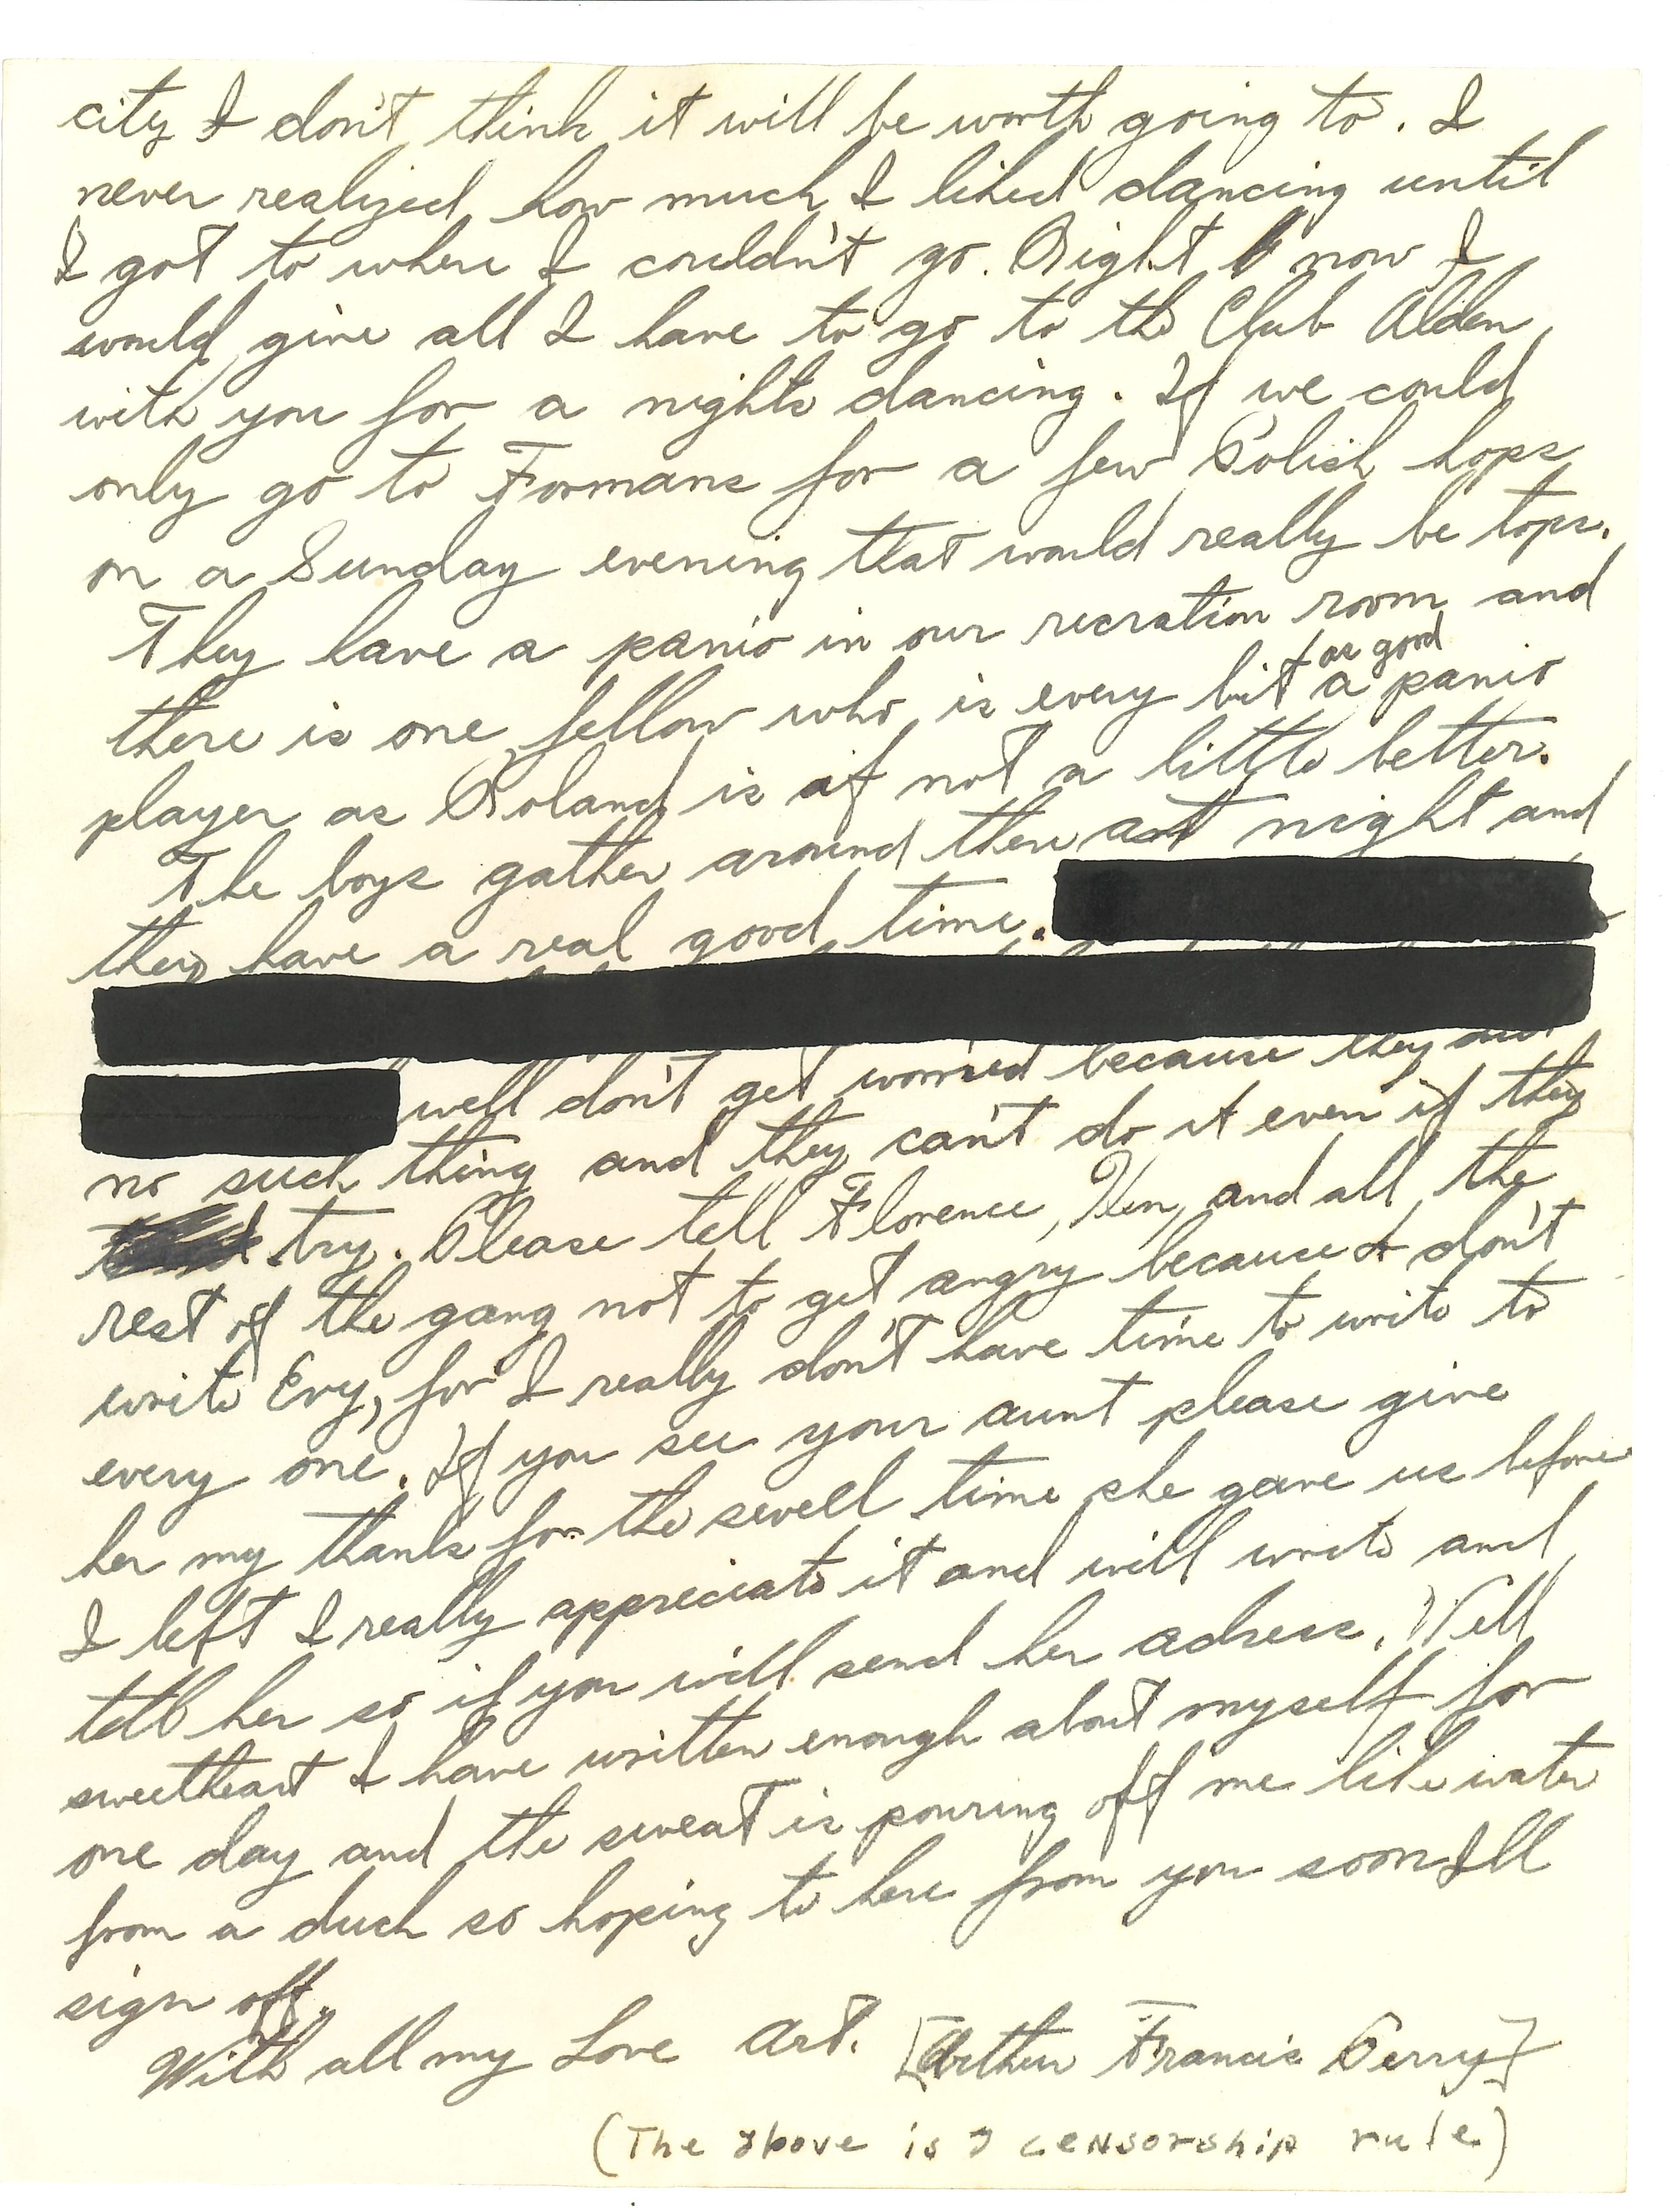 city I don't think it will be worth going to. I
never realized how much I liked dancing until
I got to where I couldn't go. Right now I
would give all I have to go to the Club Alden
with you for a nights dancing. If we could
only go to Formans for a few Polish hops
on a Sunday evening that would really be tops.
They have a panio in our recration room and
there is one fellow who is every bit as good a panio
player as Roland is if not a little better.
The boys gather around there at night and
they have a real good time.
well don't get worried because they did
no such thing and they can't do it even if they
try. Please tell Florence, Hen, and all the
rest of the gang not to get angry because I don't
write Evy, for I really don't have time to write to
every one. If you see your aunt please give
her my thanks for the swell time she gave us before
I left I really appreciate it and will write and
tell her so if you will send her adress. Well
sweetheart I have written enough about myself for
one day and the sweat is pouring off me like water
from a duck so hoping to here from you soon I'll
sign off.
With all my Love Art. [Arthur Francis Perry]
(The above is a censorship rule)